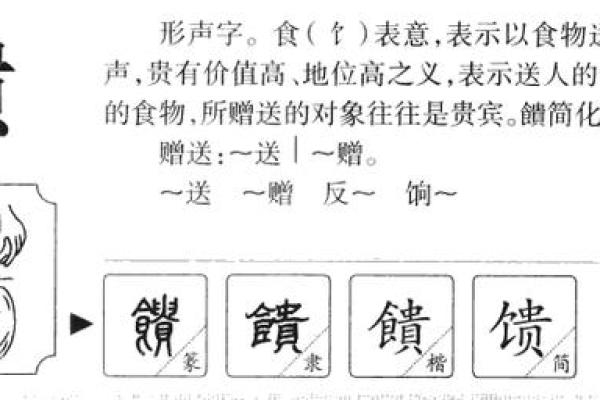 形声字。食(饣)表意,表示以食物送
声,贵有价值高、地位高之义,表示送人的
的食物,所赠送的对象往往是贵宾。饋简化
赠送:～送｜～赠。
～送 ～赠 反～ 饷～
饋 饋 饋 馈
篆 隶 楷 简